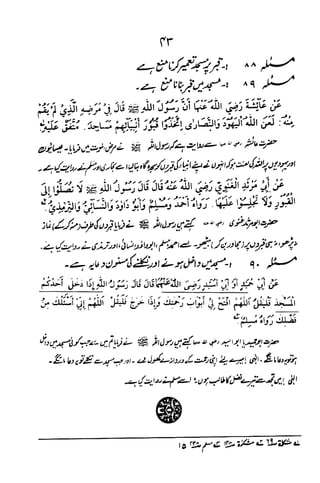 ۴۳
مسئلہ ۸۸ :- قبر پر مسجد تعمیر کرنا منع ہے
مسئلہ ۸۹ :- مسجد میں قبر بنانا منع ہے۔
عَنْ عَائِشَةَ رَضِيَ اللهُ عَنْهَا أَنَّ رَسُولَ اللهِ ﷺ قَالَ فِي مَرَضِهِ الَّذِي لَمْ يَقُمْ
مِنْهُ: لَعَنَ اللهُ الْيَهُودَ وَالنَّصَارَى اتَّخَذُوا قُبُورَ أَنْبِيَائِهِمْ مَسَاجِدَ. مُتَّفَقٌ عَلَيْهِ
حضرت عائشہ سے روایت ہے کہ رسول اللہ ﷺ نے مرض موت میں فرمایا
اور یہودیوں پر اللہ کی لعنت ہو کہ انہوں نے اپنے انبیاء کی قبروں کو سجدہ گاہ بنا لیا اسے بخاری اور مسلم نے روایت کیا ہے۔
عَنْ أَبِي مَرْثَدِ الْغَنَوِيِّ رَضِيَ اللهُ عَنْهُ قَالَ قَالَ رَسُولُ اللهِ ﷺ لَا تُصَلُّوا إِلَى
الْقُبُورِ وَلَا تَجْلِسُوا عَلَيْهَا. رَوَاهُ أَحْمَدُ وَمُسْلِمٌ وَأَبُو دَاوُدَ وَالنَّسَائِيُّ وَالتِّرْمِذِيُّ
حضرت ابو مرثد غنوی کہتے ہیں رسول اللہ ﷺ نے فرمایا قبروں کی طرف منہ کر کے نماز
نہ پڑھو نہ ہی قبروں پر بیٹھو۔ اسے احمد، مسلم، ابو داؤد، نسائی اور ترمذی نے روایت کیا ہے۔
مسئلہ ۹۰ :- مسجد میں داخل ہونے اور نکلنے کی مسنون دعا یہ ہے۔
عَنْ أَبِي حُمَيْدٍ أَوْ أَبِي أُسَيْدٍ رَضِيَ اللهُ عَنْهُمَا قَالَ قَالَ رَسُولُ اللهِ ﷺ إِذَا دَخَلَ أَحَدُكُمُ
الْمَسْجِدَ فَلْيَقُلْ اللَّهُمَّ افْتَحْ لِي أَبْوَابَ رَحْمَتِكَ وَإِذَا خَرَجَ فَلْيَقُلْ اللَّهُمَّ إِنِّي أَسْئَلُكَ مِنْ
فَضْلِكَ رَوَاهُ مُسْلِمٌ
حضرت ابو حمید یا ابو اسید کہتے ہیں رسول اللہ ﷺ نے فرمایا تم میں سے جب کوئی مسجد میں داخل
ہو تو یہ دعا مانگے۔ الٰہی! میرے لئے اپنی رحمت کے دروازے کھول دے۔ اور جب مسجد سے نکلے تو یہ دعا مانگے۔
الٰہی! میں تجھ سے تیرے فضل کا طالب ہوں۔ اسے مسلم نے روایت کیا ہے۔